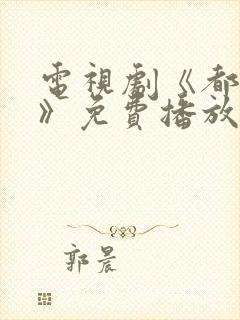 電視劇《都
》免費播放
郭晨